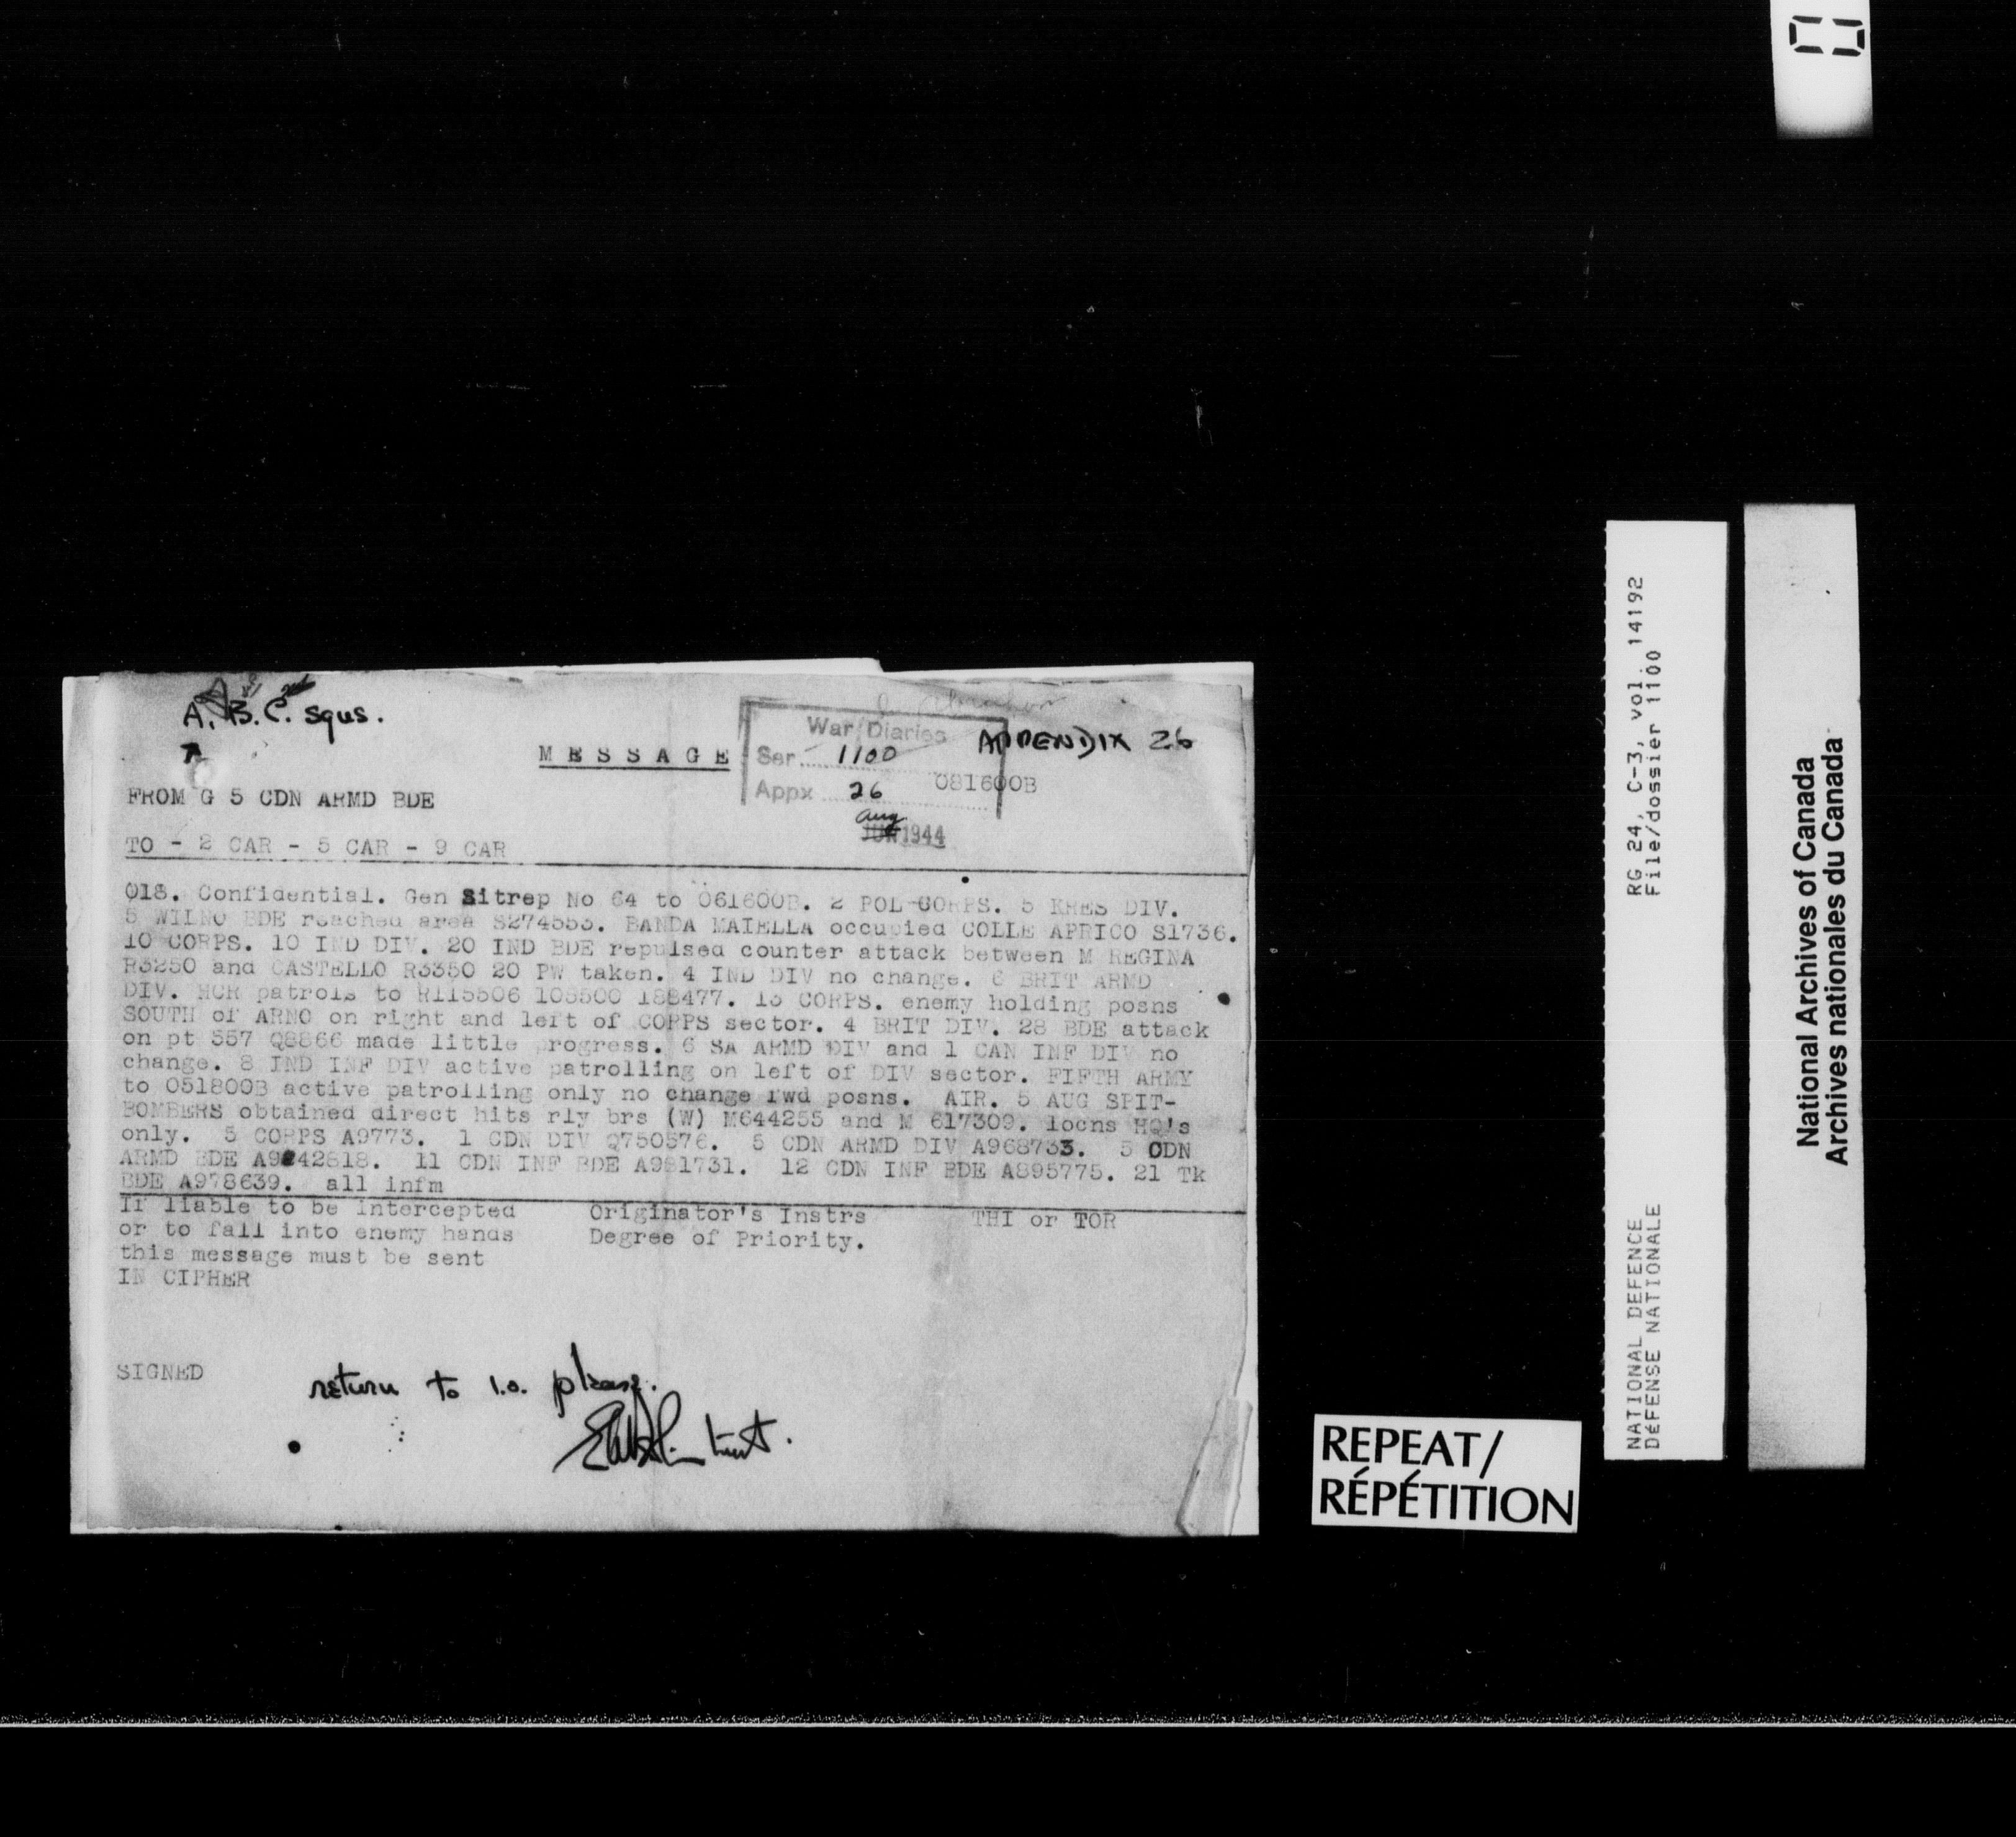 A. B. C. sqns.
MESSAGE
War Diaries
Ser. 1100
Appx 26
APPENDIX 26
081600B
Aug
JUN 1944
FROM G 5 CDN ARMD BDE
TO - 2 CAR - 5 CAR - 9 CAR
O18. Confidential. Gen Sitrep No 64 to 061600B. 2 POL CORPS. 5 KRES DIV.
5 WILNO BDE reached area S274553. BANDA MAIELLA occupied COLLE APRICO S1736.
10 CORPS. 10 IND DIV. 20 IND BDE repulsed counter attack between M REGINA
R3250 and CASTELLO R3350 20 PW taken. 4 IND DIV no change. 6 BRIT ARMD
DIV. HCR patrols to R115506 103500 188477. 13 CORPS. enemy holding posns
SOUTH of ARNO on right and left of CORPS sector. 4 BRIT DIV. 28 BDE attack
on pt 557 Q8866 made little progress. 6 SA ARMD DIV and 1 CAN INF DIV no
change. 8 IND INF DIV active patrolling on left of DIV sector. FIFTH ARMY
to 051800B active patrolling only no change fwd posns. AIR. 5 AUG SPIT-
BOMBERS obtained direct hits rly brs (W) M644255 and M 617309. locns HQ's
only. 5 CORPS A9773. 1 CDN DIV Q750576. 5 CDN ARMD DIV A968733. 5 CDN
ARMD BDE A9842818. 11 CDN INF BDE A981731. 12 CDN INF BDE A895775. 21 Tk
BDE A978639. all infm
If liable to be intercepted
or to fall into enemy hands
this message must be sent
IN CIPHER
Originator's Instrs
Degree of Priority.
THI or TOR
SIGNED
return to I.O. please.
REPEAT/
RÉPÉTITION
NATIONAL DEFENCE
DÉFENSE NATIONALE
RG 24, C-3, vol. 14192
File/dossier 1100
National Archives of Canada
Archives nationales du Canada